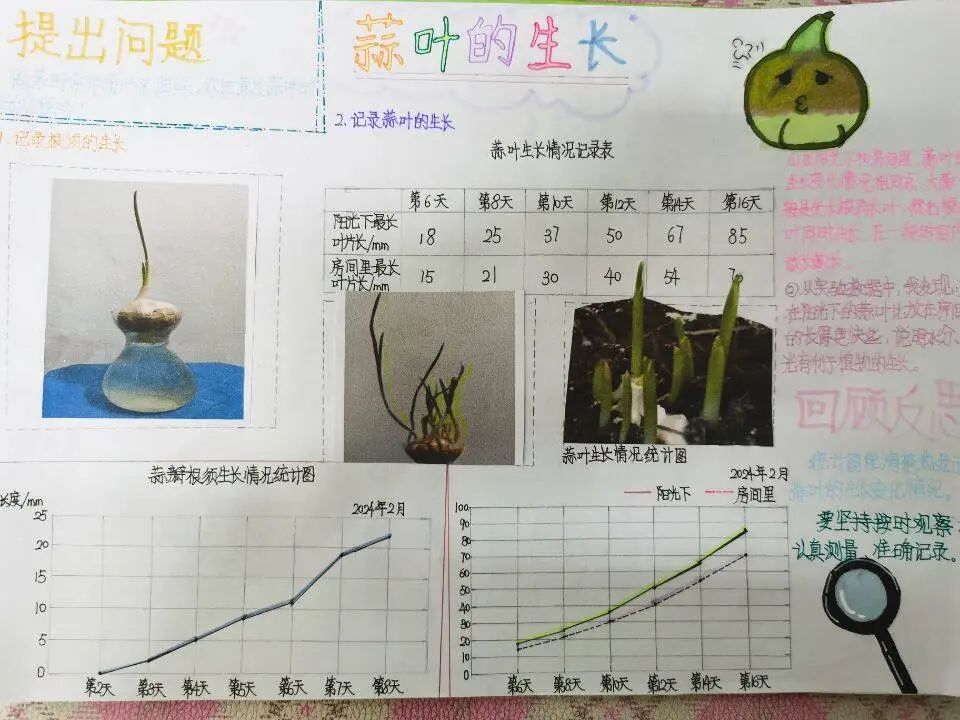 提出问题
蒜叶的生长
1.记录根须的生长
2.记录蒜叶的生长
蒜叶生长情况记录表
第6天 第8天 第10天 第12天 第14天 第16天
阳光下最长叶片长/mm 18 25 37 50 67 85
房间里最长叶片长/mm 15 21 30 40 54
②从实验数据中,我发现
在阳光下的蒜叶比放在房间
的长得更快些,说明水分、
光有利于植物的生长。
回顾反思
蒜叶的生长变化情况。
要坚持按时观察
认真测量,准确记录。
蒜瓣根须生长情况统计图
长度/mm
2024年2月
25
20
15
10
5
0
第2天 第3天 第4天 第5天 第6天 第7天 第8天
蒜叶生长情况统计图
2024年2月
阳光下 房间里
100
90
80
70
60
50
40
30
20
10
0
第6天 第8天 第10天 第12天 第14天 第16天